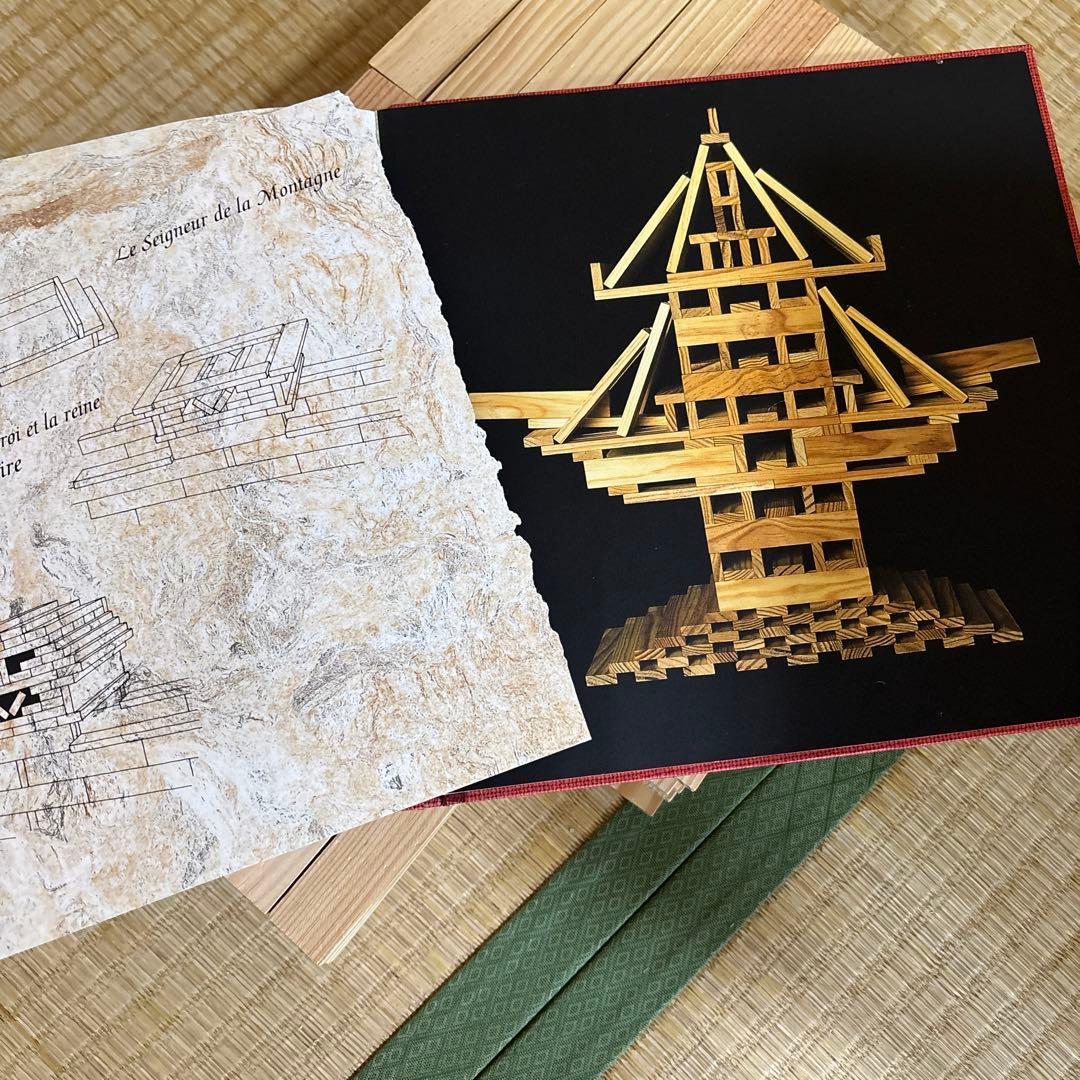 Le Seigneur de la Montagne
roi et la reine
ire